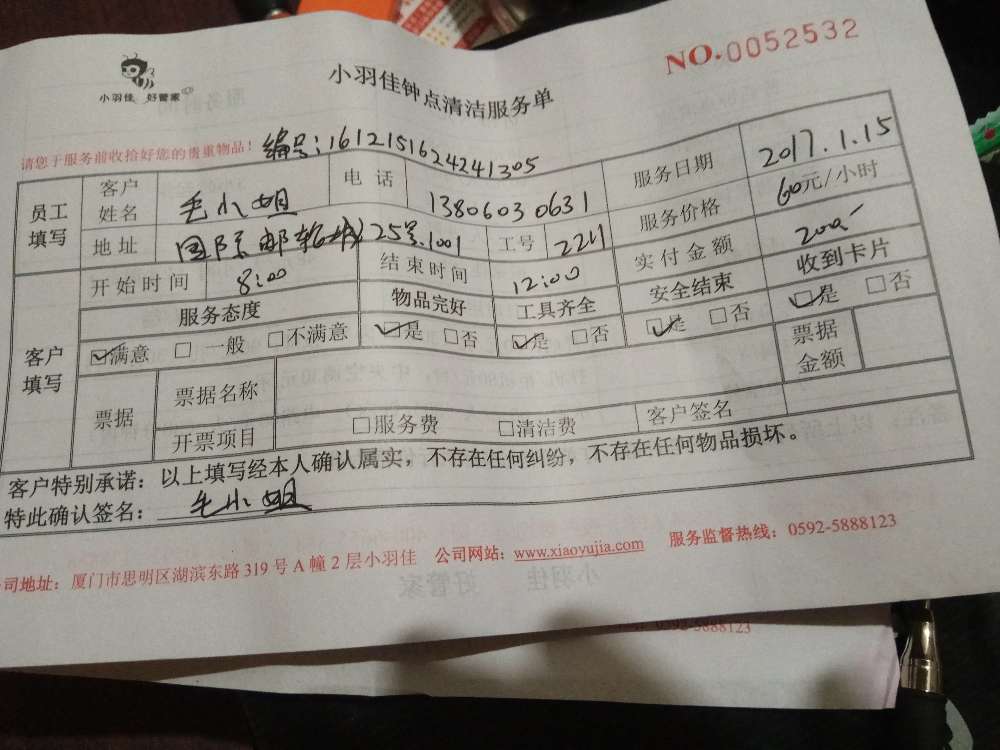 NO.0052532
小羽佳 好管家
小羽佳钟点清洁服务单
请您于服务前收拾好您的贵重物品！ 编号：1612151624241305
员工填写 客户姓名 毛小姐 电话 13806030631 服务日期 2017.1.15
地址 国际邮轮城25号.1001 工号 2211 服务价格 60元/小时
客户填写 开始时间 8:00 结束时间 12:00 实付金额 200
服务态度 物品完好 工具齐全 安全结束 收到卡片
☑满意 □一般 □不满意 ☑是 □否 ☑是 □否 ☑是 □否 ☑是 □否
票据 票据名称 票据金额
开票项目 □服务费 □清洁费 客户签名
客户特别承诺：以上填写经本人确认属实，不存在任何纠纷，不存在任何物品损坏。
特此确认签名： 毛小姐
司地址：厦门市思明区湖滨东路319号A幢2层小羽佳 公司网站：www.xiaoyujia.com 服务监督热线：0592-5888123
0592-5888123